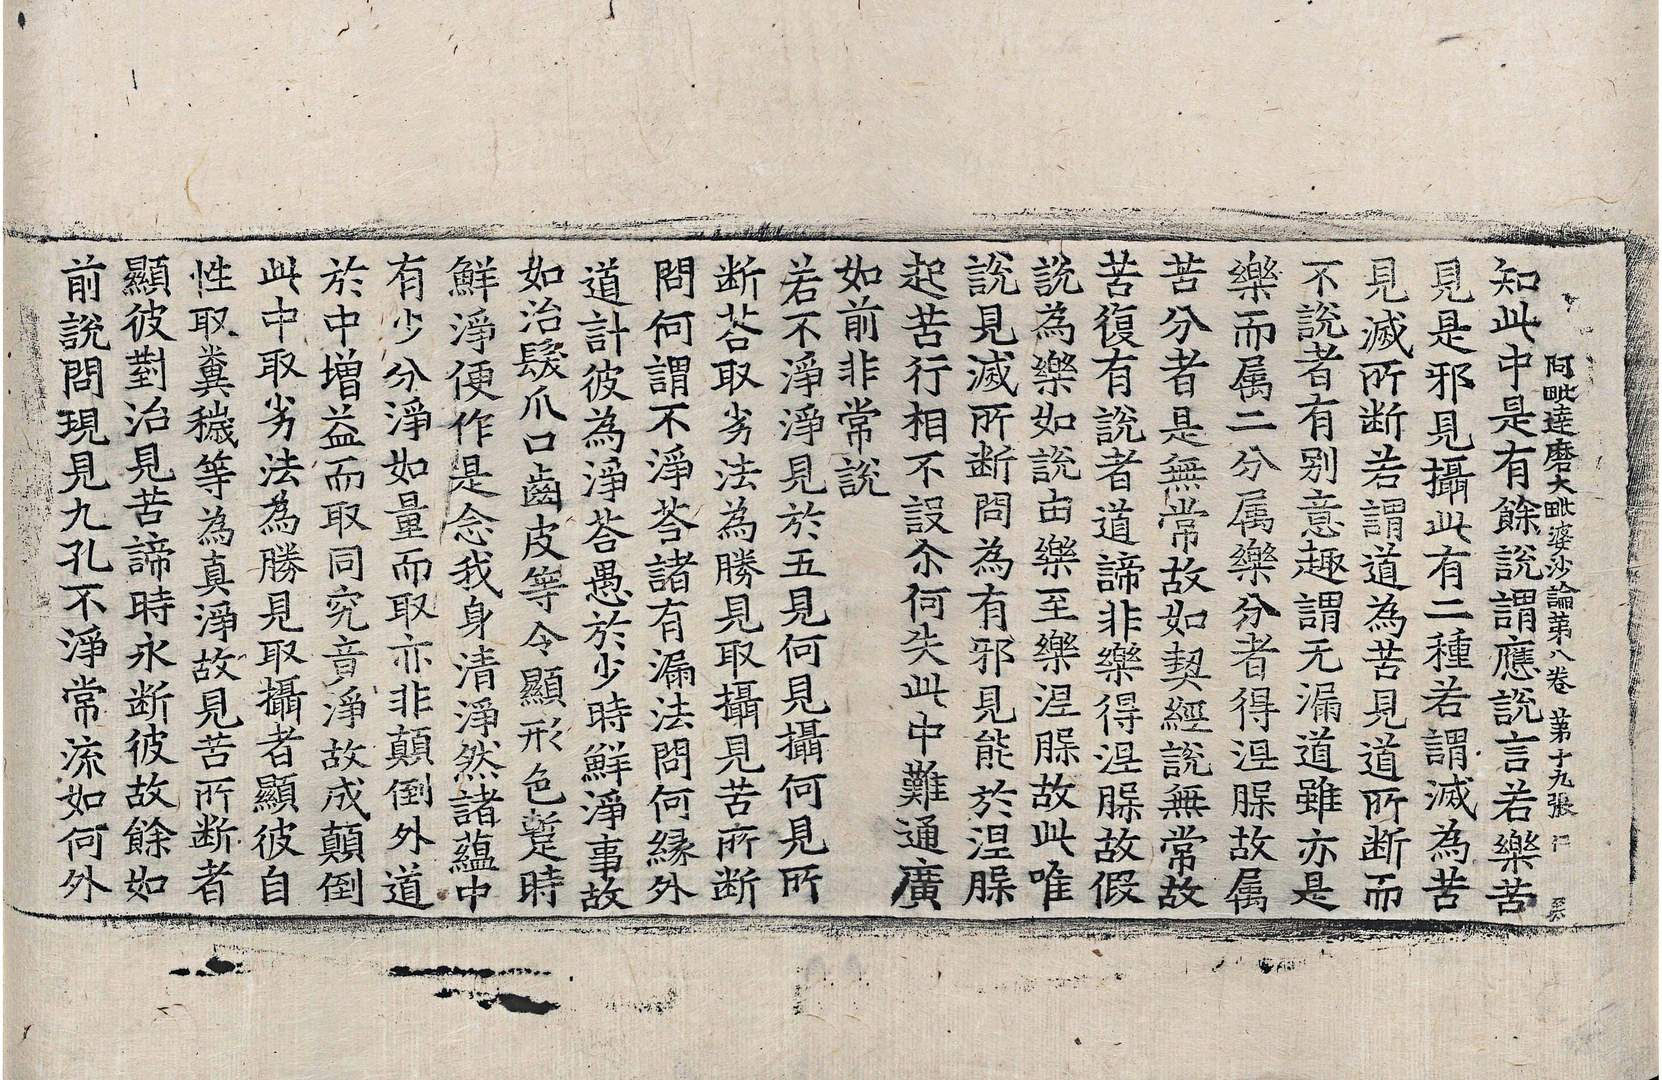 阿毗達磨大毗婆沙論第八卷 第十九張 仁
知此中是有餘說謂應說言若樂苦
見是邪見攝此有二種若謂滅為苦
見滅所断若謂道為苦見道所断而
不說者有別意趣謂无漏道雖亦是
樂而属二分属樂分者得涅槃故属
苦分者是無常故如契經說無常故
苦復有說者道諦非樂得涅槃故假
說為樂如說由樂至樂涅槃故此唯
說見滅所断問為有邪見能於涅槃
起苦行相不設尒何失此中難通廣
如前非常說
若不淨淨見於五見何見攝何見所
断荅取劣法為勝見取攝見苦所断
問何謂不淨荅諸有漏法問何緣外
道計彼為淨荅愚於少時鮮淨事故
如治髮爪口齒皮等令顯形色蹔時
鮮淨便作是念我身清淨然諸蘊中
有少分淨如量而取亦非顛倒外道
於中增益而取同究竟淨故成顛倒
此中取劣法為勝見取攝者顯彼自
性取糞穢等為真淨故見苦所断者
顯彼對治見苦諦時永断彼故餘如
前說問現見九孔不淨常流如何外